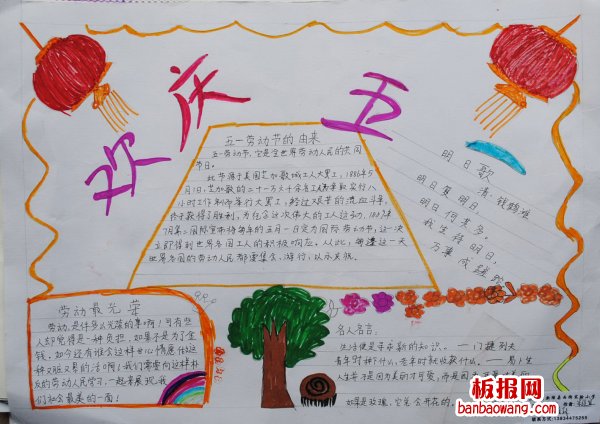 欢庆五一
五一劳动节的由来
五一劳动节,它是全世界劳动人民的共同
节日。
此节源于美国芝加哥城工人大罢工,1886年5
月1日,芝加哥的二十一万六千余名工人为争取实行八
小时工作制而举行大罢工,经过艰苦的流血斗争,
终于获得了胜利,为纪念这次伟大的工人运动,1889年
7月第二国际宣布将每年的五月一日定为国际劳动节。这一决
立即得到世界各国工人的积极响应。从此,每逢这一天
世界各国的劳动人民都要集会,游行,以示庆祝。
明日歌
清·钱鹤滩
明日复明日,
明日何其多。
我生待明日,
万事成蹉跎
劳动最光荣
劳动,是件多么光荣的事啊!可有些
人却觉得是一种负担,如果不是为了金
钱,如今还有谁会这样
又脏又累的活啊!我们需要向这样
的劳动人民学习,一起来展现我
们社会最美的一面!
名人名言,
生活便是寻求新的知识。——门捷列夫
青年时种下什么,老年时就收获什么。——易卜生
人生并不是因为美丽才可爱,而是因为
如果是玫瑰,它总会开花的。
板报网
banbaowang.com